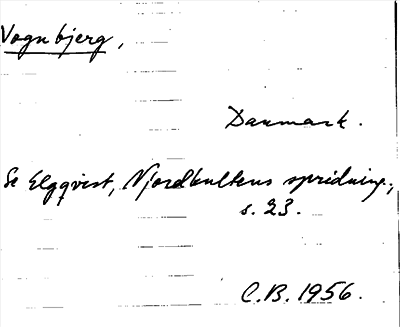 Vognbjerg,
Danmark.
Se Elgqvist, Njordkultens spridning,
s. 23.
C.B. 1956.